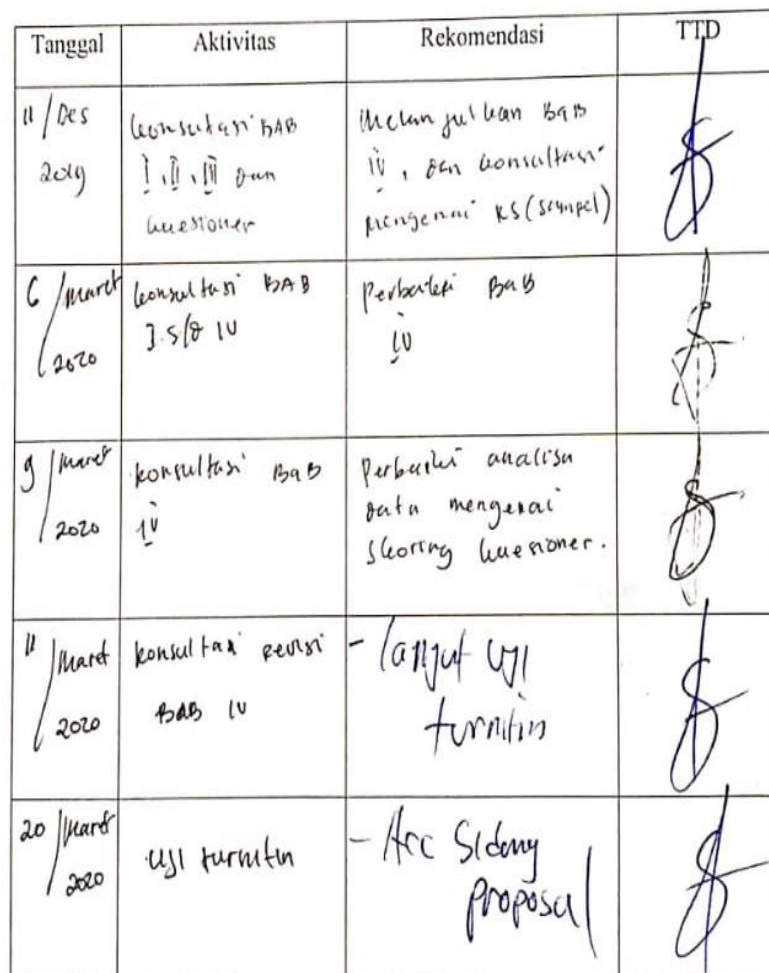 Tanggal Aktivitas Rekomendasi TTD
11 / Des
2019
konsultasi BAB
I, II, III dan
kuesioner
melanjutkan BaB
IV, dan konsultasi
mengenai KS (sampel)
6 / maret
2020
konsultasi BAB
IV
Perbaiki BaB
IV
9 / maret
2020
konsultasi BaB
IV
Perbaiki analisa
data mengenai
skoring kuesioner.
11 / Maret
2020
konsultasi revisi
BAB IV
- lanjut uji
turnitin
20 / Maret
2020
uji turnitin
- Acc Sidang
proposal